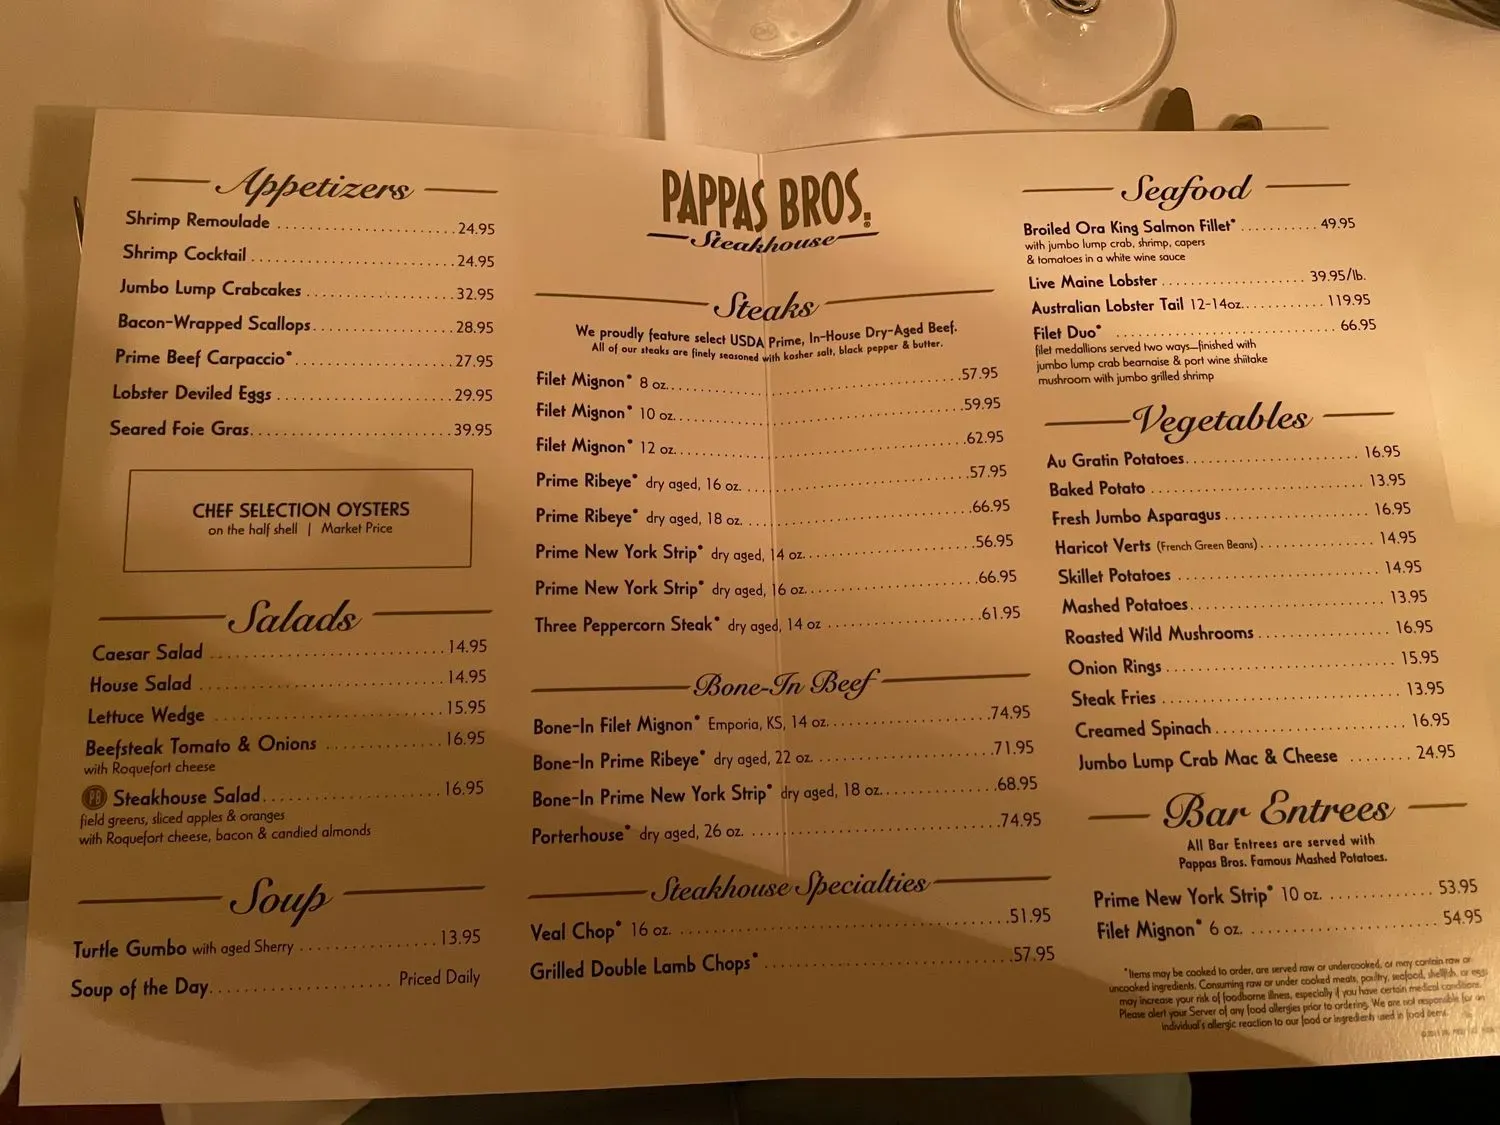 Appetizers
Shrimp Remoulade 24.95
Shrimp Cocktail 24.95
Jumbo Lump Crabcakes 32.95
Bacon-Wrapped Scallops 28.95
Prime Beef Carpaccio* 27.95
Lobster Deviled Eggs 29.95
Seared Foie Gras 39.95
CHEF SELECTION OYSTERS
on the half shell | Market Price
Salads
Caesar Salad 14.95
House Salad 14.95
Lettuce Wedge 15.95
Beefsteak Tomato & Onions 16.95
with Roquefort cheese
PB Steakhouse Salad 16.95
field greens, sliced apples & oranges
with Roquefort cheese, bacon & candied almonds
Soup
Turtle Gumbo with aged Sherry 13.95
Soup of the Day Priced Daily
PAPPAS BROS.®
Steakhouse
Steaks
We proudly feature select USDA Prime, In-House Dry-Aged Beef.
All of our steaks are finely seasoned with kosher salt, black pepper & butter.
Filet Mignon* 8 oz. 57.95
Filet Mignon* 10 oz. 59.95
Filet Mignon* 12 oz. 62.95
Prime Ribeye* dry aged, 16 oz. 57.95
Prime Ribeye* dry aged, 18 oz. 66.95
Prime New York Strip* dry aged, 14 oz. 56.95
Prime New York Strip* dry aged, 16 oz. 66.95
Three Peppercorn Steak* dry aged, 14 oz 61.95
Bone-In Beef
Bone-In Filet Mignon* Emporia, KS, 14 oz. 74.95
Bone-In Prime Ribeye* dry aged, 22 oz. 71.95
Bone-In Prime New York Strip* dry aged, 18 oz. 68.95
Porterhouse* dry aged, 26 oz. 74.95
Steakhouse Specialties
Veal Chop* 16 oz. 51.95
Grilled Double Lamb Chops* 57.95
Seafood
Broiled Ora King Salmon Fillet* 49.95
with jumbo lump crab, shrimp, capers
& tomatoes in a white wine sauce
Live Maine Lobster 39.95/lb.
Australian Lobster Tail 12-14oz. 119.95
Filet Duo* 66.95
filet medallions served two ways—finished with
jumbo lump crab bearnaise & port wine shiitake
mushroom with jumbo grilled shrimp
Vegetables
Au Gratin Potatoes 16.95
Baked Potato 13.95
Fresh Jumbo Asparagus 16.95
Haricot Verts (French Green Beans) 14.95
Skillet Potatoes 14.95
Mashed Potatoes 13.95
Roasted Wild Mushrooms 16.95
Onion Rings 15.95
Steak Fries 13.95
Creamed Spinach 16.95
Jumbo Lump Crab Mac & Cheese 24.95
Bar Entrees
All Bar Entrees are served with
Pappas Bros. Famous Mashed Potatoes.
Prime New York Strip* 10 oz. 53.95
Filet Mignon* 6 oz. 54.95
*Items may be cooked to order, are served raw or undercooked, or may contain raw or
uncooked ingredients. Consuming raw or under cooked meats, poultry, seafood, shellfish, or eggs
may increase your risk of foodborne illness, especially if you have certain medical conditions.
Please alert your Server of any food allergies prior to ordering. We are not responsible for an
individual's allergic reaction to our food or ingredients used in food items.